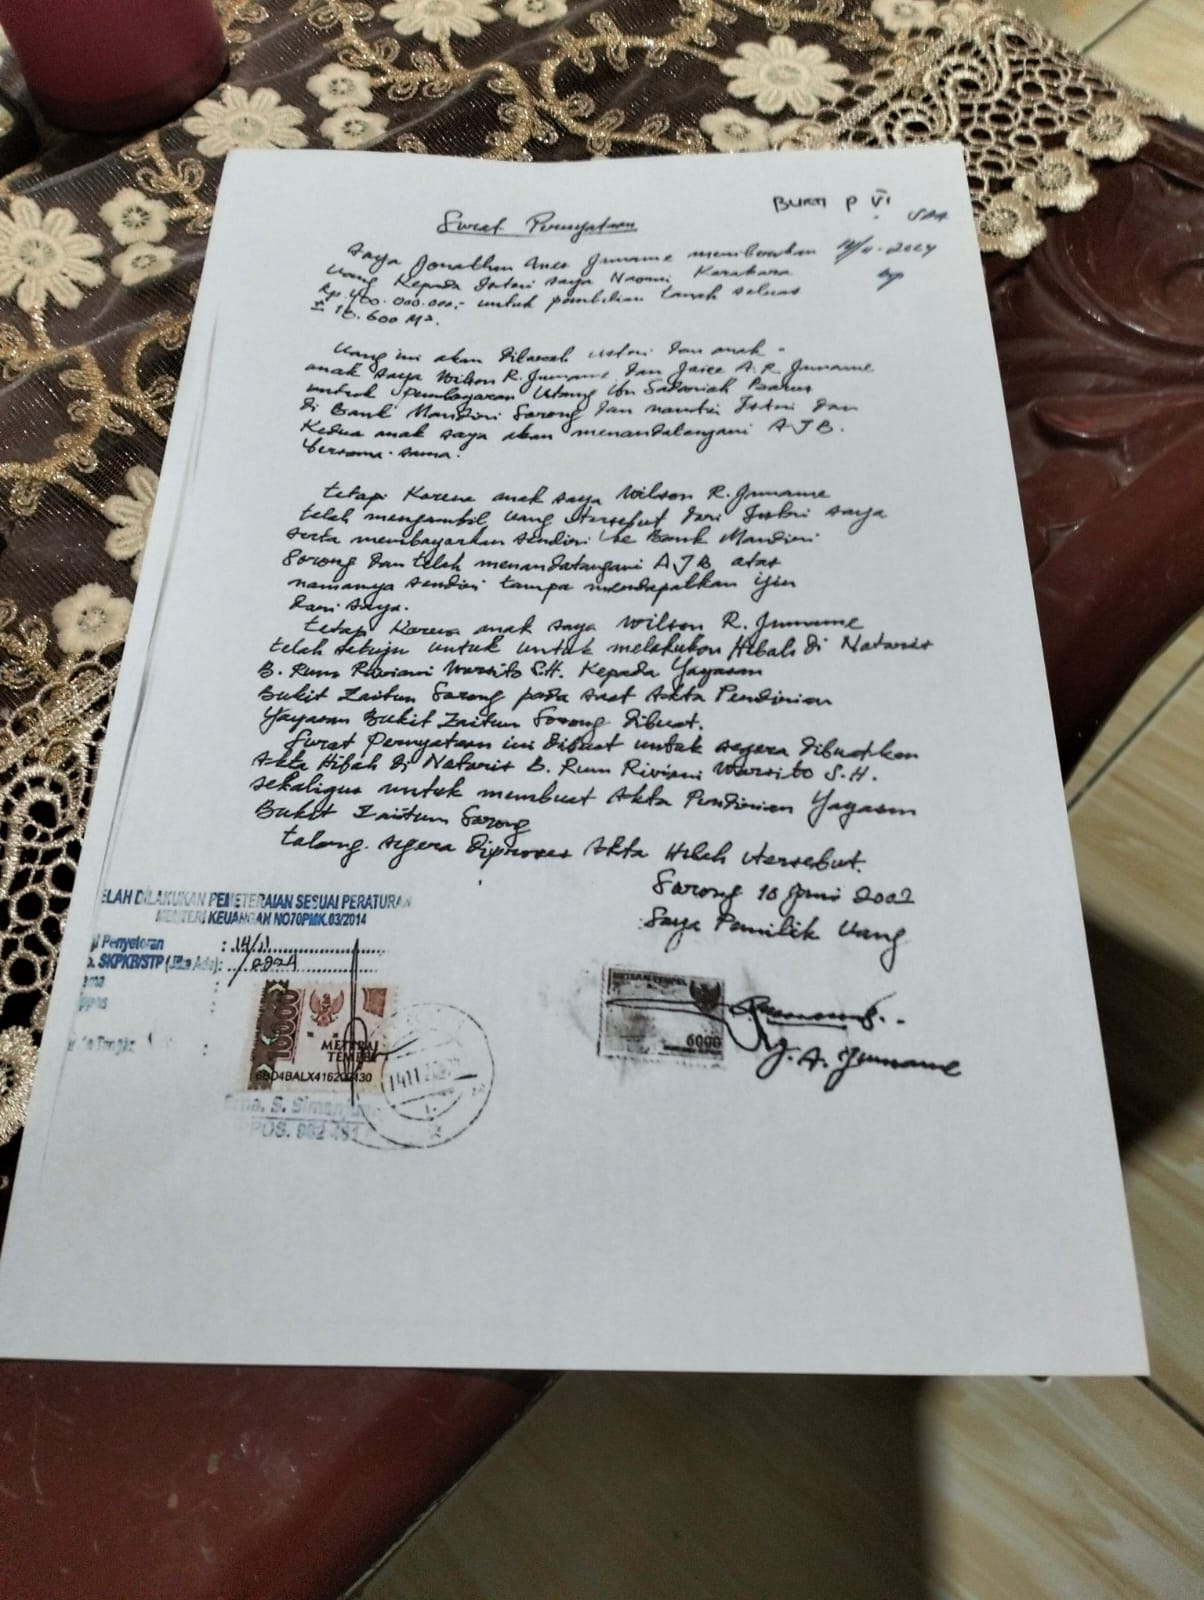 BUKTI P VI
Surat Pernyataan
14/11-2024
Saya Jonathan Ances Jumame memberikan
Uang Kepada Istri saya Naomi Karakara
Rp. 400.000.000,- untuk pembelian tanah seluas
± 18.600 M2.
Uang ini akan dibawah istri dan anak-
anak saya Wilson R. Jumame dan Joice A. R. Jumame
untuk pembayaran Utang Ibu Sadariah
di Bank Mandiri Sorong dan nanti Istri dan
Kedua anak saya akan menandatangani AJB.
bersama-sama.
tetapi Karena anak saya Wilson R. Jumame
telah mengambil uang tersebut dari Istri saya
serta membayarkan sendiri ke Bank Mandiri
Sorong dan telah menandatangani AJB atas
namanya sendiri tampa mendapatkan ijin
dari saya.
tetapi Karena anak saya Wilson R. Jumame
telah setuju untuk untuk melakukan Hibah di Notaris
B. Rum Riviani Warsito S.H. Kepada Yayasan
Bukit Zaitun Sorong pada saat Akta Pendirian
Yayasan Bukit Zaitun Sorong dibuat.
Surat Pernyataan ini dibuat untuk segera dibuatkan
Akta Hibah di Notaris B. Rum Riviani Warsito S.H.
sekaligus untuk membuat Akta Pendirian Yayasan
Bukit Zaitun Sorong
tolong segera diproses Akta Hibah tersebut.
Sorong 18 Juni 2002
Saya Pemilik Uang
ELAH DILAKUKAN PEMETERAIAN SESUAI PERATURAN
MENTERI KEUANGAN NO70PMK.03/2014
Penyetoran : 14/11
SKPKB/STP (Jika Ada): /2024
METERAI TEMPEL
6000
J. A. Jumame
10000
METERAI
TEMPEL
14 11
S. Simanju
POS. 982